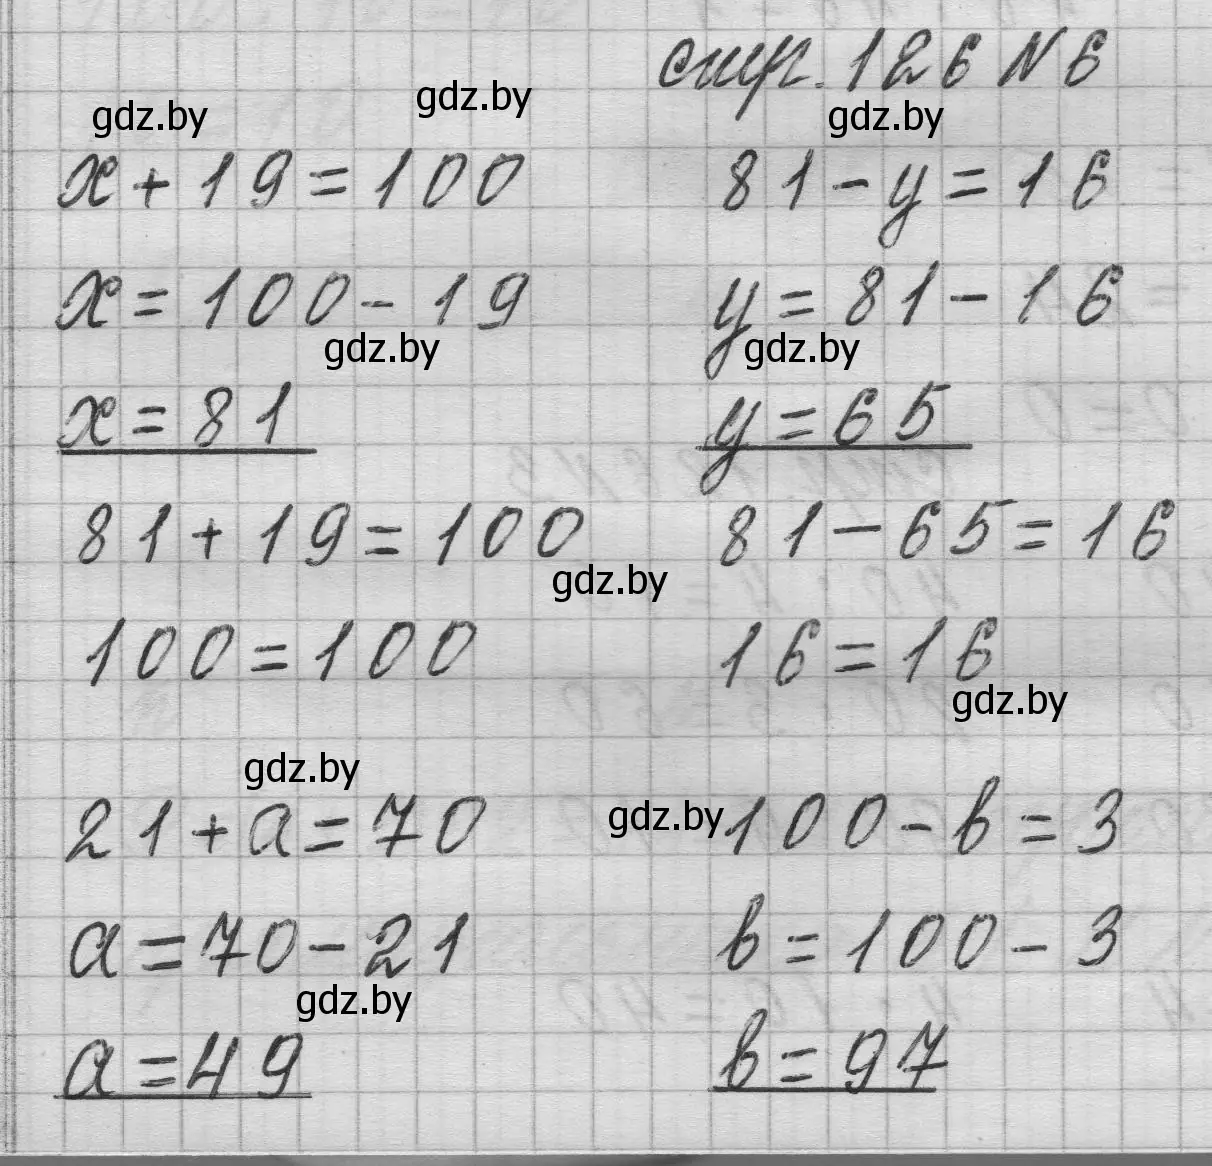 стр. 126 № 6
gdz.by gdz.by gdz.by
x + 19 = 100 81 - y = 16
x = 100 - 19 y = 81 - 16
gdz.by gdz.by
x = 81 y = 65
81 + 19 = 100 81 - 65 = 16
gdz.by
100 = 100 16 = 16
gdz.by
gdz.by
21 + a = 70 gdz.by 100 - в = 3
a = 70 - 21 в = 100 - 3
gdz.by
a = 49 в = 97